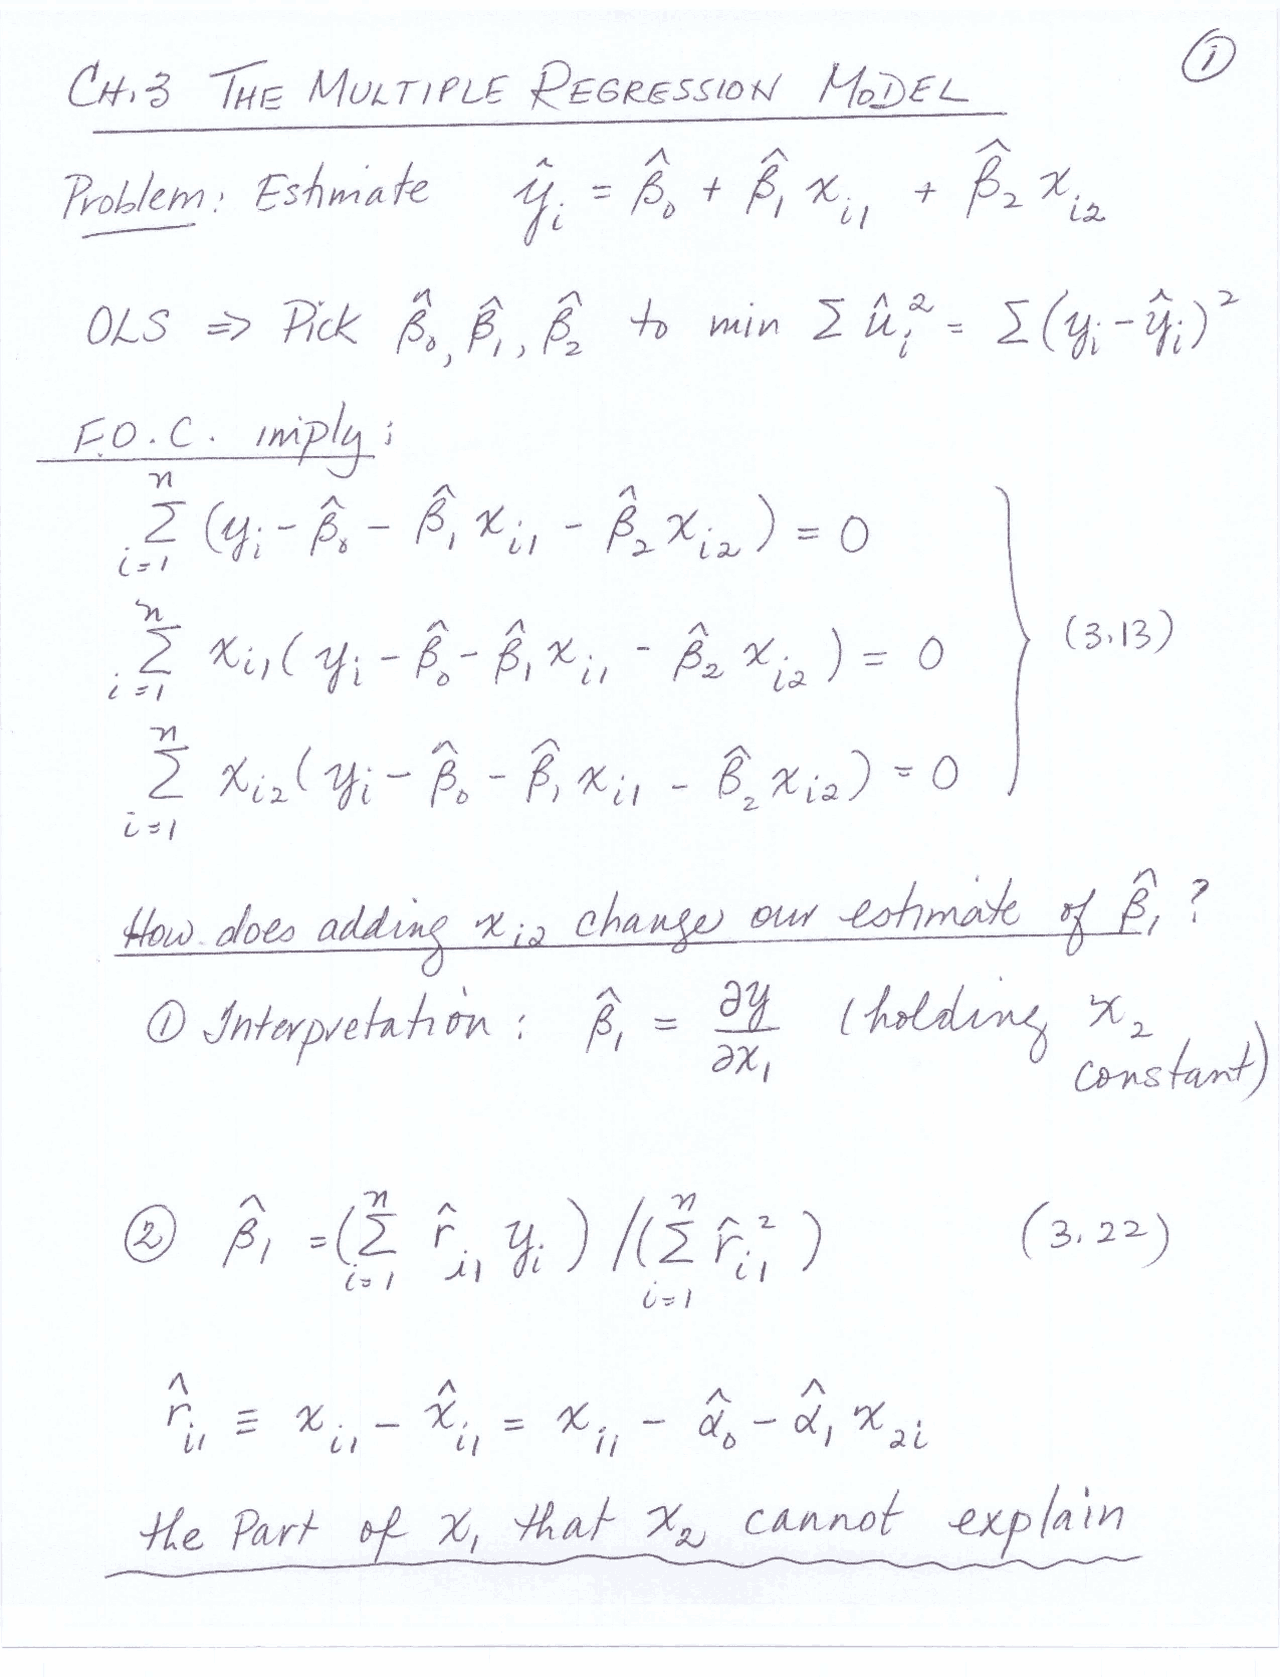 ①
CH.3 THE MULTIPLE REGRESSION MODEL
Problem: Estimate ŷᵢ = β̂₀ + β̂₁ xᵢ₁ + β̂₂ xᵢ₂
OLS ⇒ Pick β̂₀, β̂₁, β̂₂ to min Σ ûᵢ² = Σ(yᵢ - ŷᵢ)²
F.O.C. imply:
Σᵢ₌₁ⁿ (yᵢ - β̂₀ - β̂₁ xᵢ₁ - β̂₂ xᵢ₂) = 0
Σᵢ₌₁ⁿ xᵢ₁(yᵢ - β̂₀ - β̂₁ xᵢ₁ - β̂₂ xᵢ₂) = 0 } (3.13)
Σᵢ₌₁ⁿ xᵢ₂(yᵢ - β̂₀ - β̂₁ xᵢ₁ - β̂₂ xᵢ₂) = 0
How does adding xᵢ₂ change our estimate of β̂₁?
① Interpretation: β̂₁ = ∂y/∂x₁ (holding x₂
constant)
② β̂₁ = (Σᵢ₌₁ⁿ r̂ᵢ₁ yᵢ) / (Σᵢ₌₁ⁿ r̂ᵢ₁²) (3.22)
r̂ᵢ₁ ≡ xᵢ₁ - x̂ᵢ₁ = xᵢ₁ - α̂₀ - α̂₁ x₂ᵢ
the Part of x₁ that x₂ cannot explain